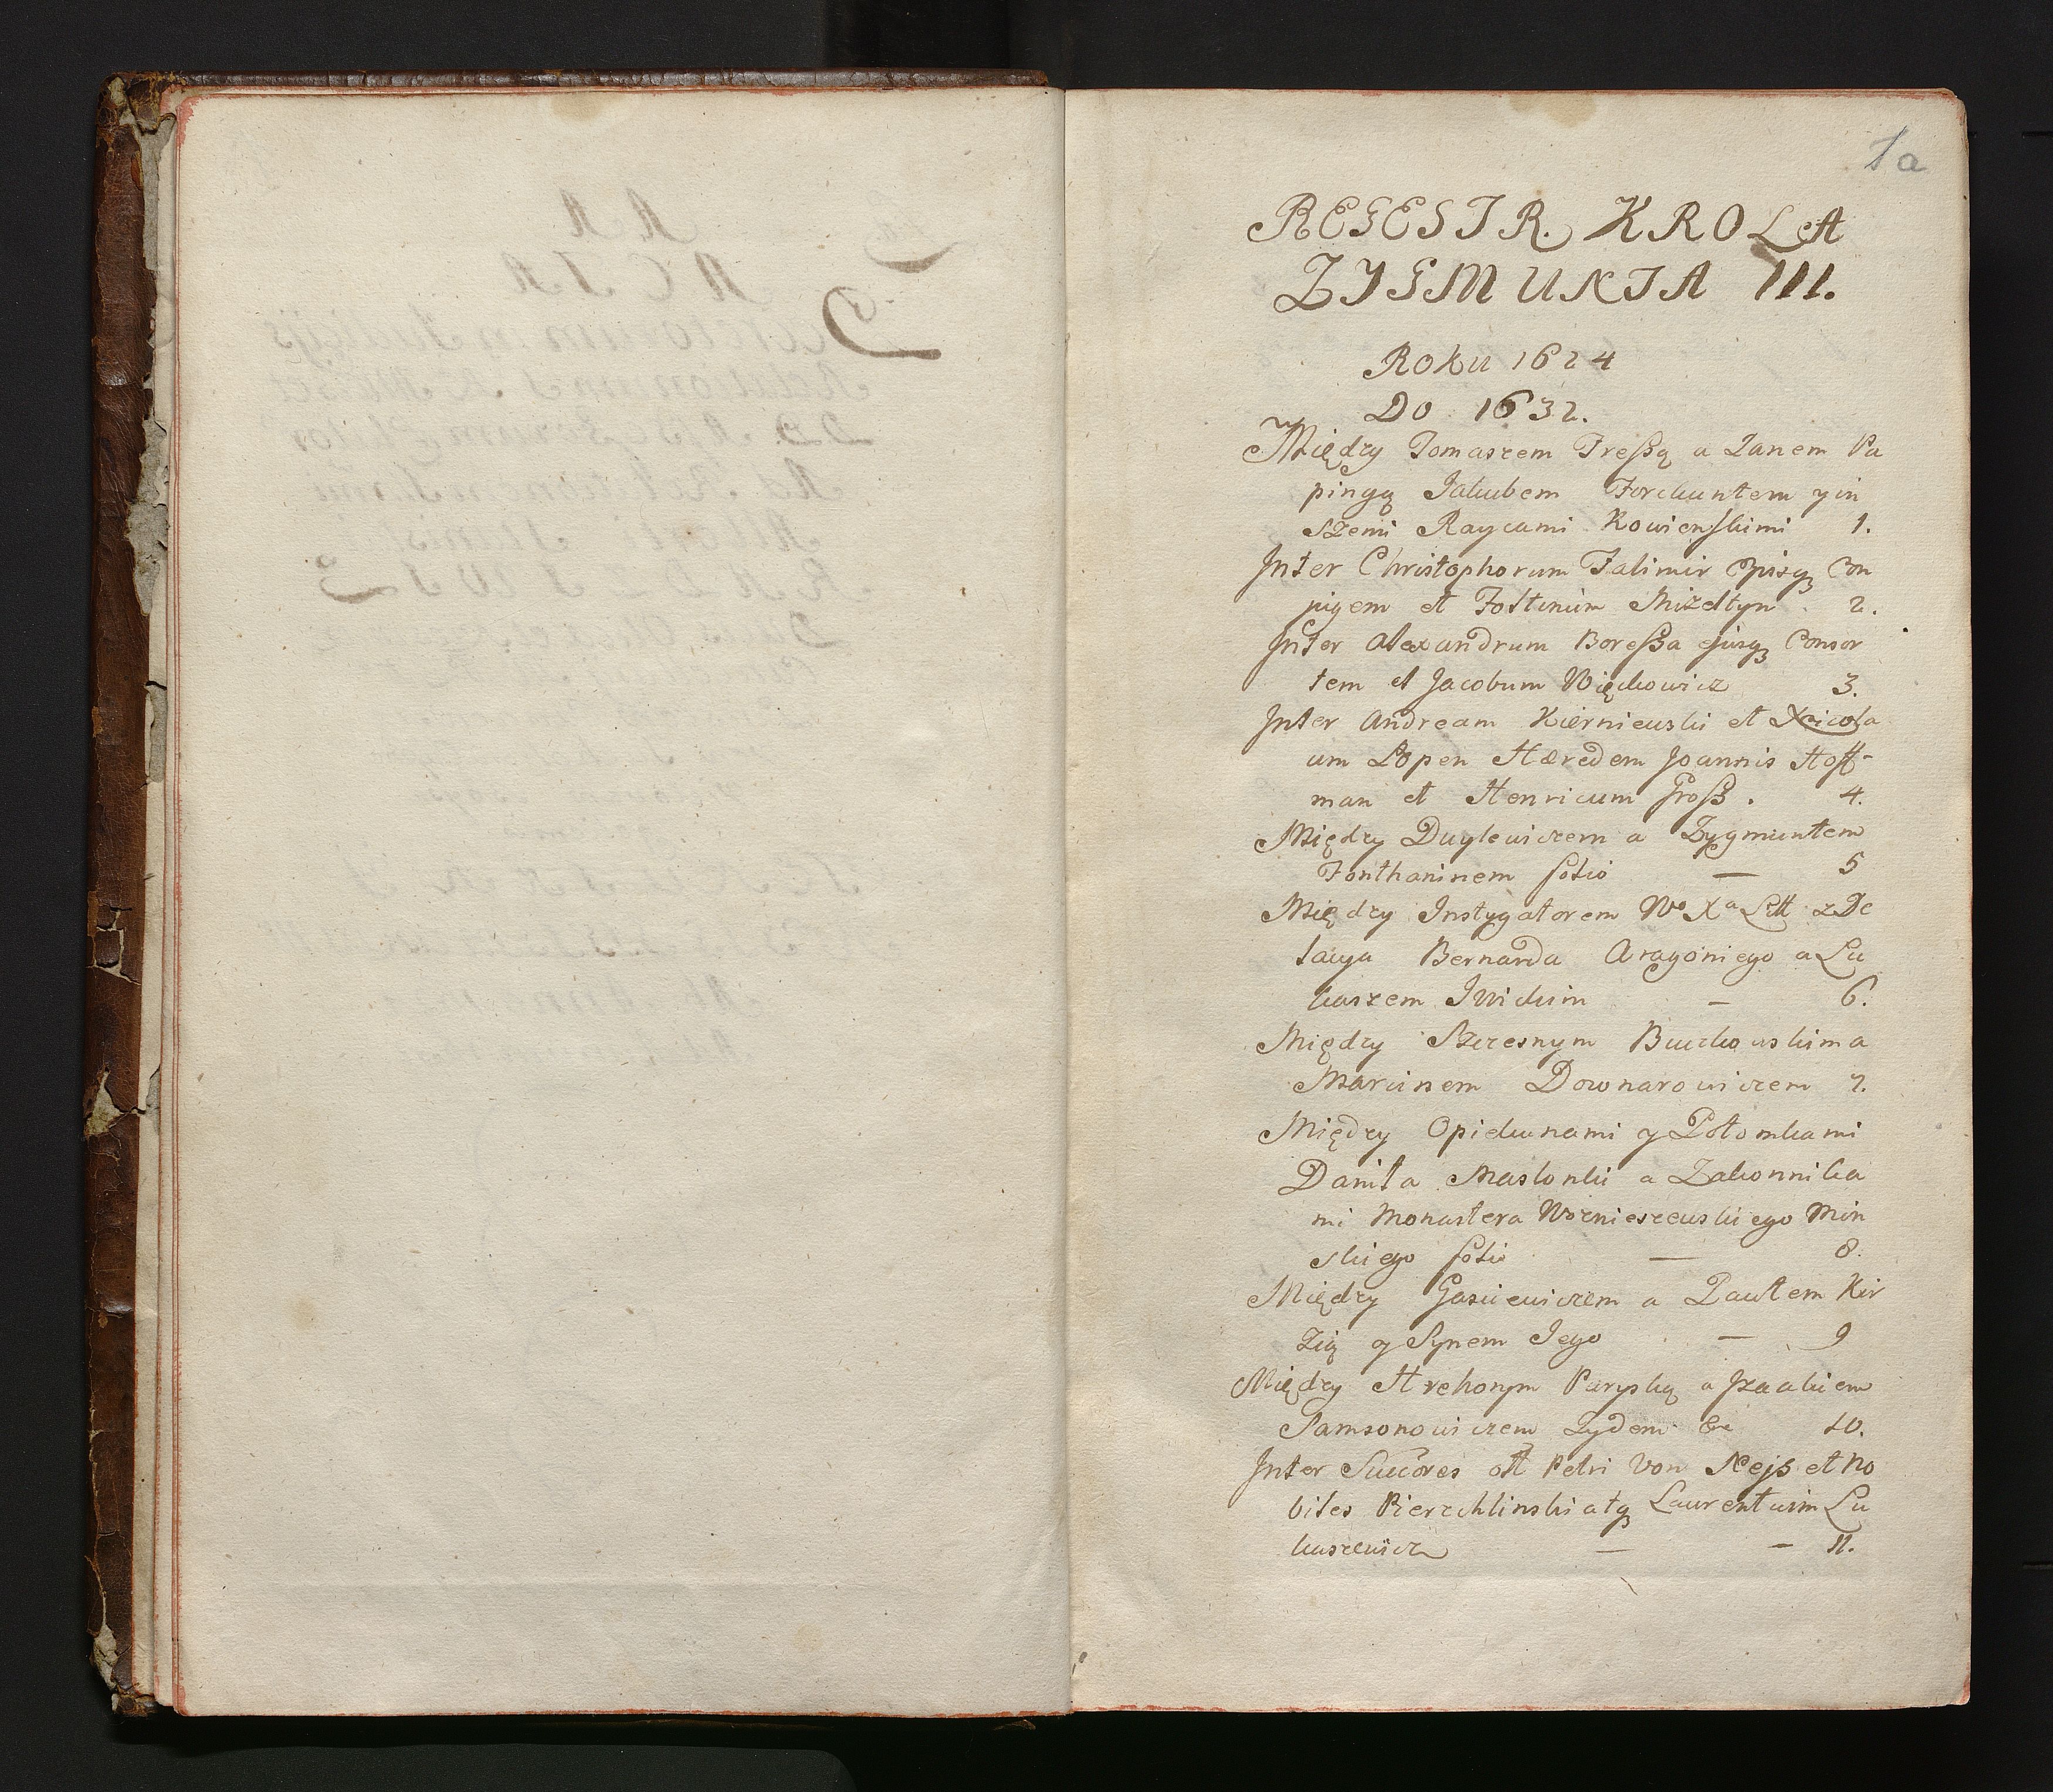 1a
REGESTR. KROLA
ZYGMUNTA III.
Roku 1624
Do 1632.
Między Tomaszem Treßą a Janem Pa
pingą Jakubem Forchuntem y in
szemi Raycami Kowienskimi 1.
Inter Christophorum Talimir ejusq₃ Con
jugem et Fostinum Mizeltyn 2.
Inter Alexandrum Boreßa ejusq₃ Consor
tem et Jacobum Więckowicz 3.
Inter Andream Kierniewski et Nicola
um Lopen Hæredem Joannis Hoff-
man et Henricum Groß. 4.
Między Duylewiczem a Zygmuntem
Fonthaninem folio — 5
Między Instygatorem Wo Xa Litt z De
lacyą Bernarda Aragoniego a Łu
kaszem — 6.
Między Szczesnym Buczkowskim a
Marcinem Downarowiczem 7.
Między Opiekunami y Potomkami
Daniła Masłonki a Zakonnika
mi Monastera Woznieszewskiego Min
skiego folio — 8.
Między Gasiewiczem a Pawłem Kir
zią y Synem Jego — 9
Między Hrehorym Paryską a Jzaakiem
Samsonowiczem Zydem &c 10.
Inter Succores olt Petri Von Nejß et No
biles Pierzchlinski atq₃ Laurentium Łu
kaszewicz — — 11.